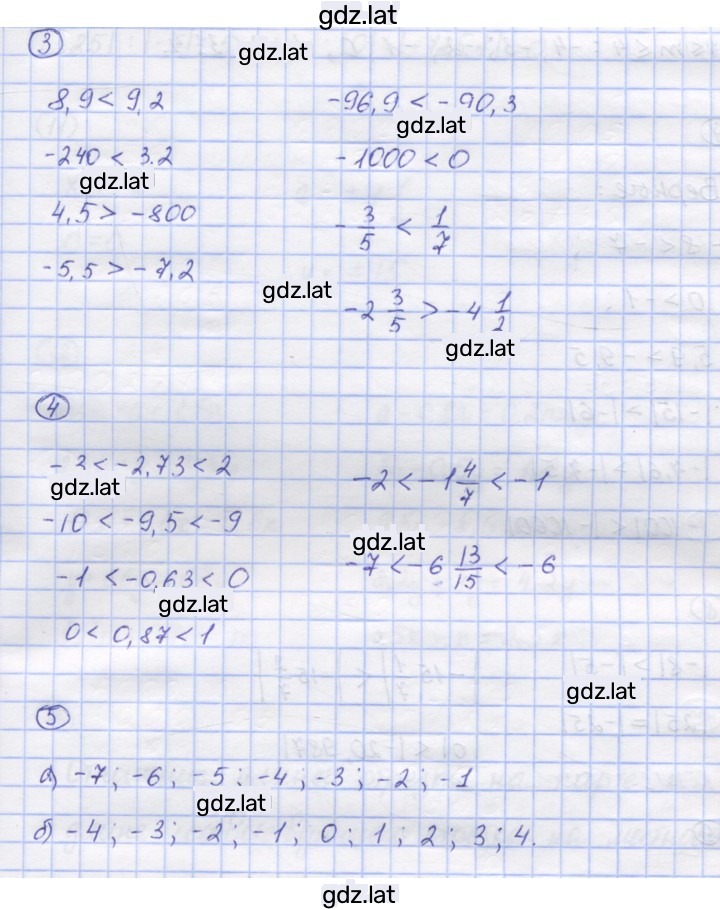 gdz.lat
3
gdz.lat
8,9 < 9,2
-96,9 < -90,3
gdz.lat
-240 < 3.2
-1000 < 0
gdz.lat
4,5 > -800
-3/5 < 1/7
-5,5 > -7,2
gdz.lat
-2 3/5 > -4 1/2
gdz.lat
4
-3 < -2,73 < 2
-2 < -1 4/7 < -1
gdz.lat
-10 < -9,5 < -9
gdz.lat
-7 < -6 13/15 < -6
-1 < -0,63 < 0
gdz.lat
0 < 0,87 < 1
gdz.lat
5
а) -7; -6; -5; -4; -3; -2; -1
gdz.lat
б) -4; -3; -2; -1; 0; 1; 2; 3; 4.
gdz.lat